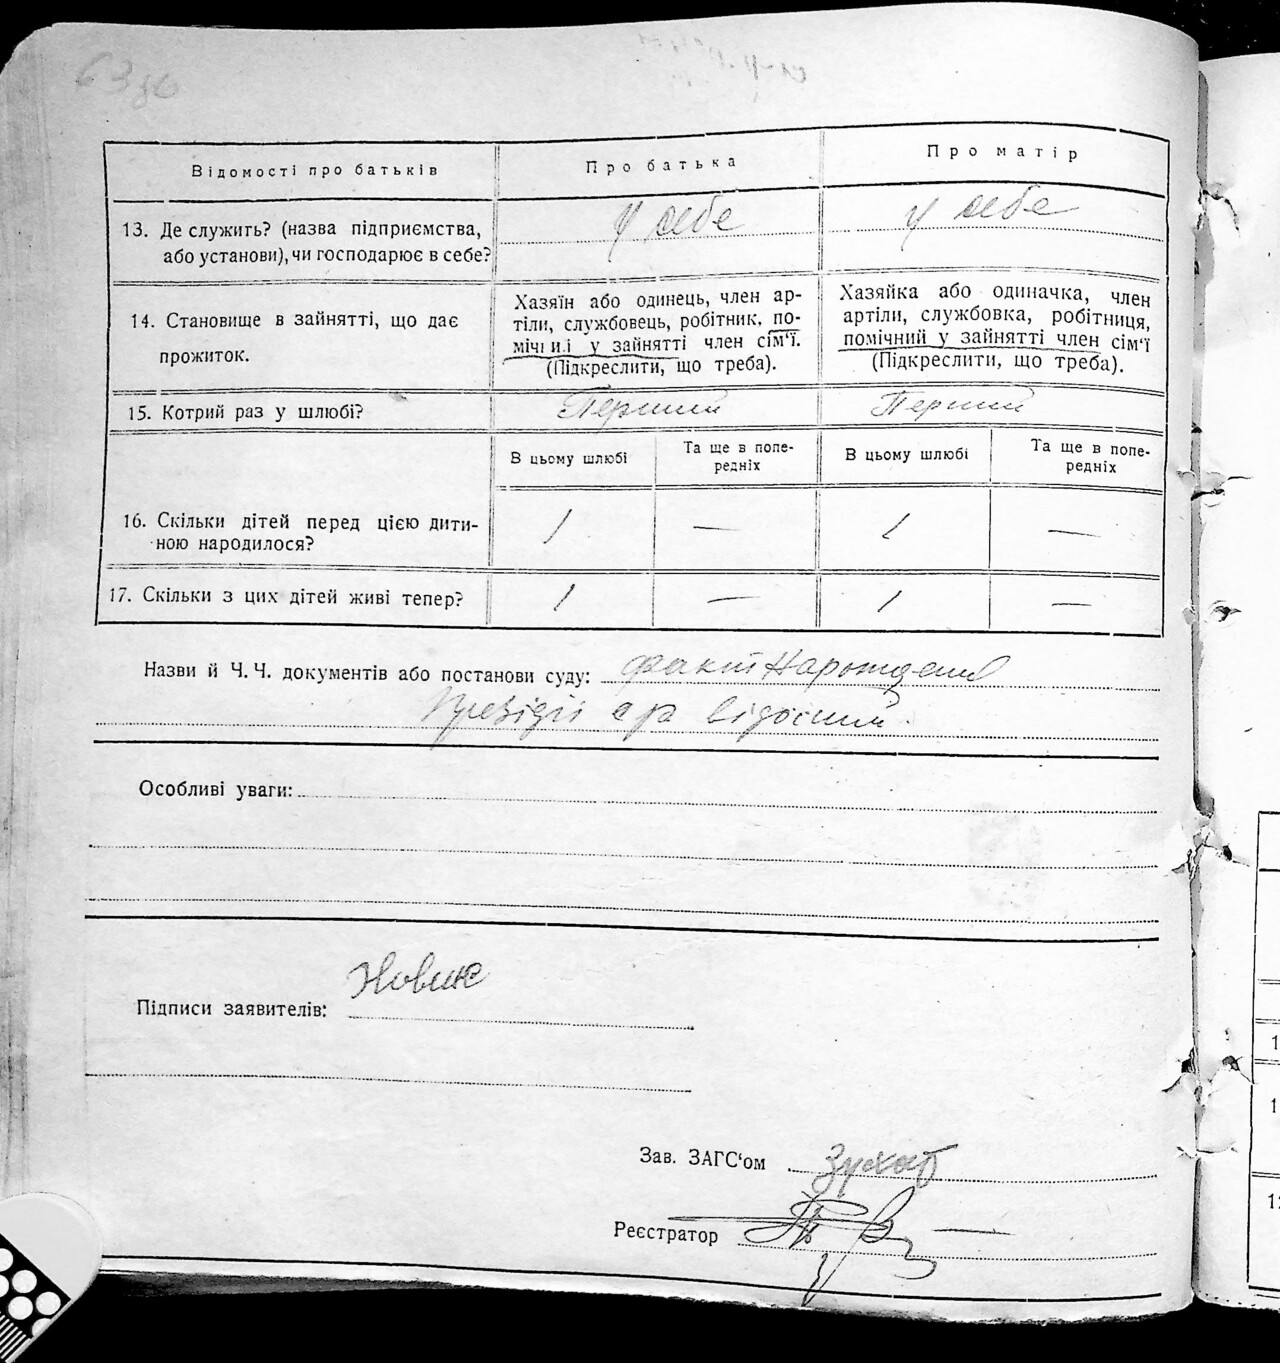 Відомості про батьків
Про батька
Про матір
13. Де служить? (назва підприємства,
або установи), чи господарює в себе?
у себе
у себе
14. Становище в зайнятті, що дає
прожиток.
Хазяїн або одинець, член ар-
тіли, службовець, робітник, по-
мічний у зайнятті член сім'ї.
(Підкреслити, що треба).
Хазяйка або одиначка, член
артіли, службовка, робітниця,
помічний у зайнятті член сім'ї
(Підкреслити, що треба).
15. Котрий раз у шлюбі?
Перший
Перший
В цьому шлюбі
Та ще в попе-
редніх
В цьому шлюбі
Та ще в попе-
редніх
16. Скільки дітей перед цією дити-
ною народилося?
1
—
1
—
17. Скільки з цих дітей живі тепер?
1
—
1
—
Назви й Ч. Ч. документів або постанови суду: факт Нарождения
Президії с/р відомий.
Особливі уваги:
Підписи заявителів:
Зав. ЗАГС'ом
Реєстратор
1
1
12